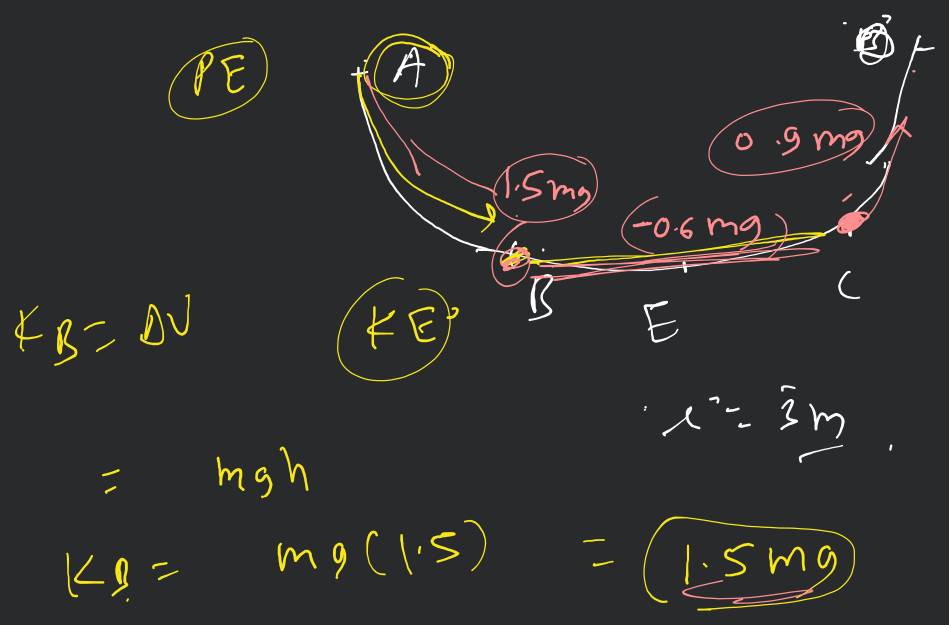 PE
A
1.5mg
0.9mg
(-0.6mg)
B
E
C
K_B = ΔU
KE
l = 3m
= mgh
K_B = mg(1.5) = 1.5mg